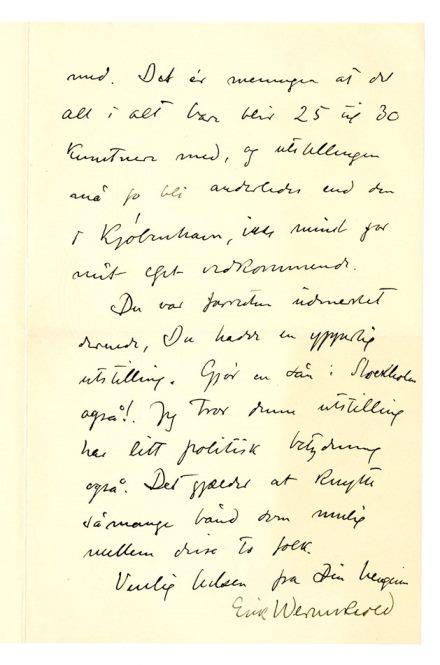 med. Det er meningen at det
alt i alt bare blir 25 til 30
kunstnere med, og utstillingen
må jo bli anderledes end den
i Kjøbenhavn, ikke mindst for
mit eget vedkommende.
Du var forresten udmerket
dernede, Du hadde en ypperlig
utstilling. Gjør en sån i Stockholm
også! Jeg tror denne utstilling
har litt politisk betydning
også. Det gjælder at knytte
så mange bånd som mulig
mellem disse to folk.
Venlig hilsen fra Din hengivne
Erik Werenskiold